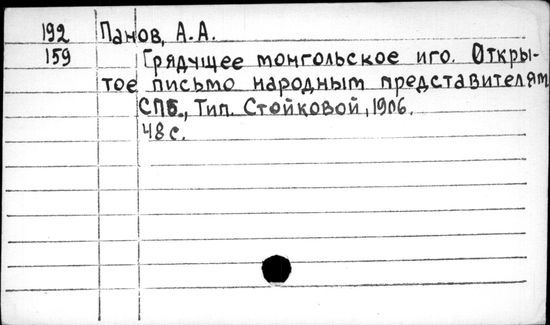 192 Панов, А.А.
159 Грядущее монгольское иго. Откры-
тое письмо народным представителям
СПБ., Тип. Стойковой, 1906.
48 с.